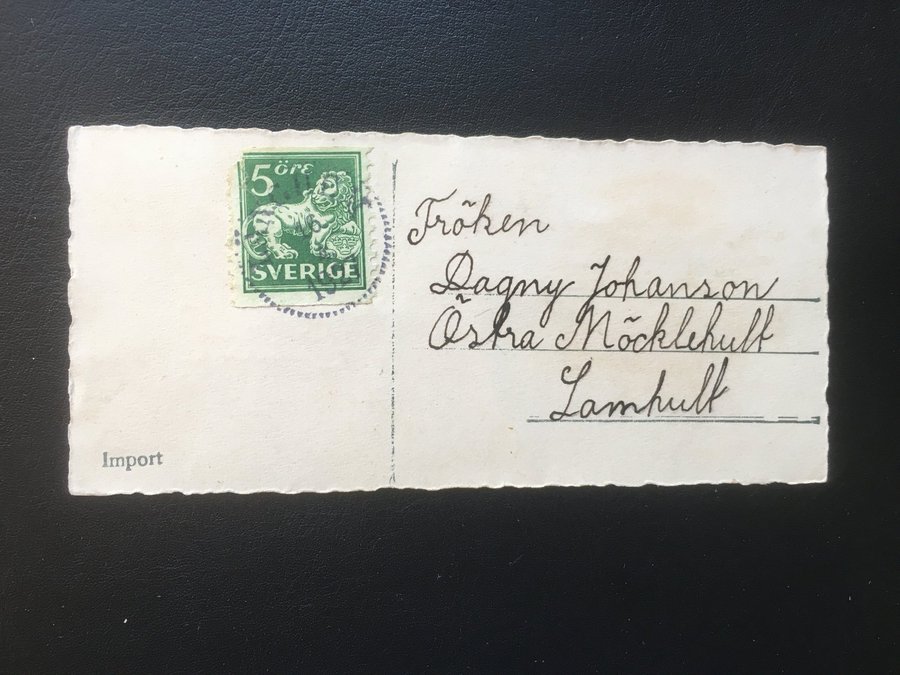 5 öre
SVERIGE
Fröken
Dagny Johanson
Östra Möcklehult
Lamhult
Import